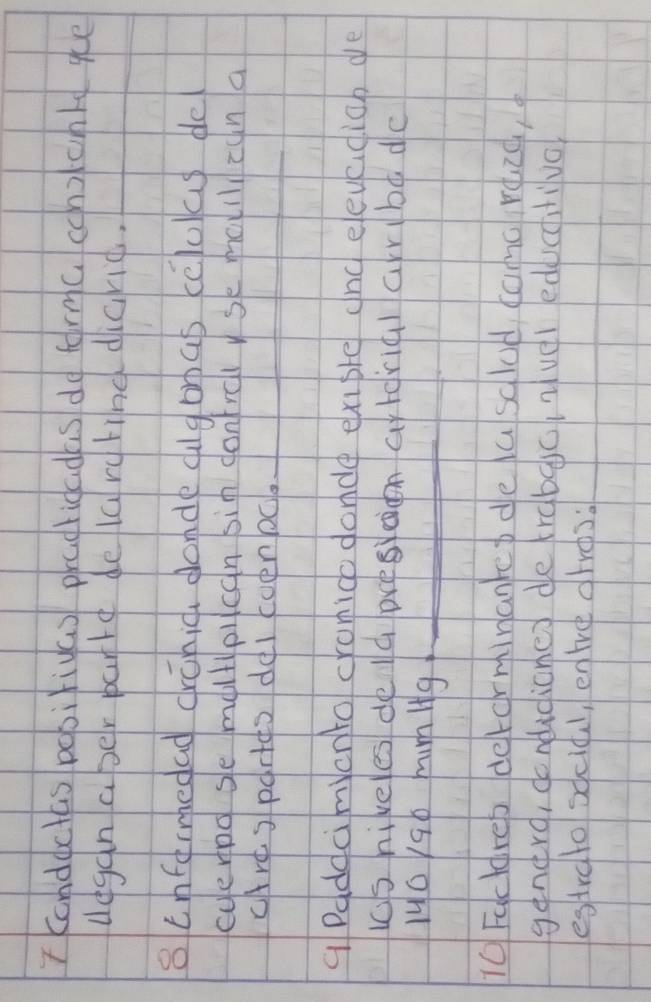 7 Conductas positivas practicadas de forma constante que
llegan a ser parte de la rutina diaria.
8 Enfermedad crónia donde algunas células del
cuerpo se multiplican sin control y se movilizan a
otras partes del cuerpo.
9 Padecimiento cronico donde existe una elevacion de
los niveles de la presion arterial arriba de
140/90 mmHg.
10 Factores determinantes de la salud como raza,
genero, condiciones de trabajo, nivel educativo,
estrato social, entre otros: